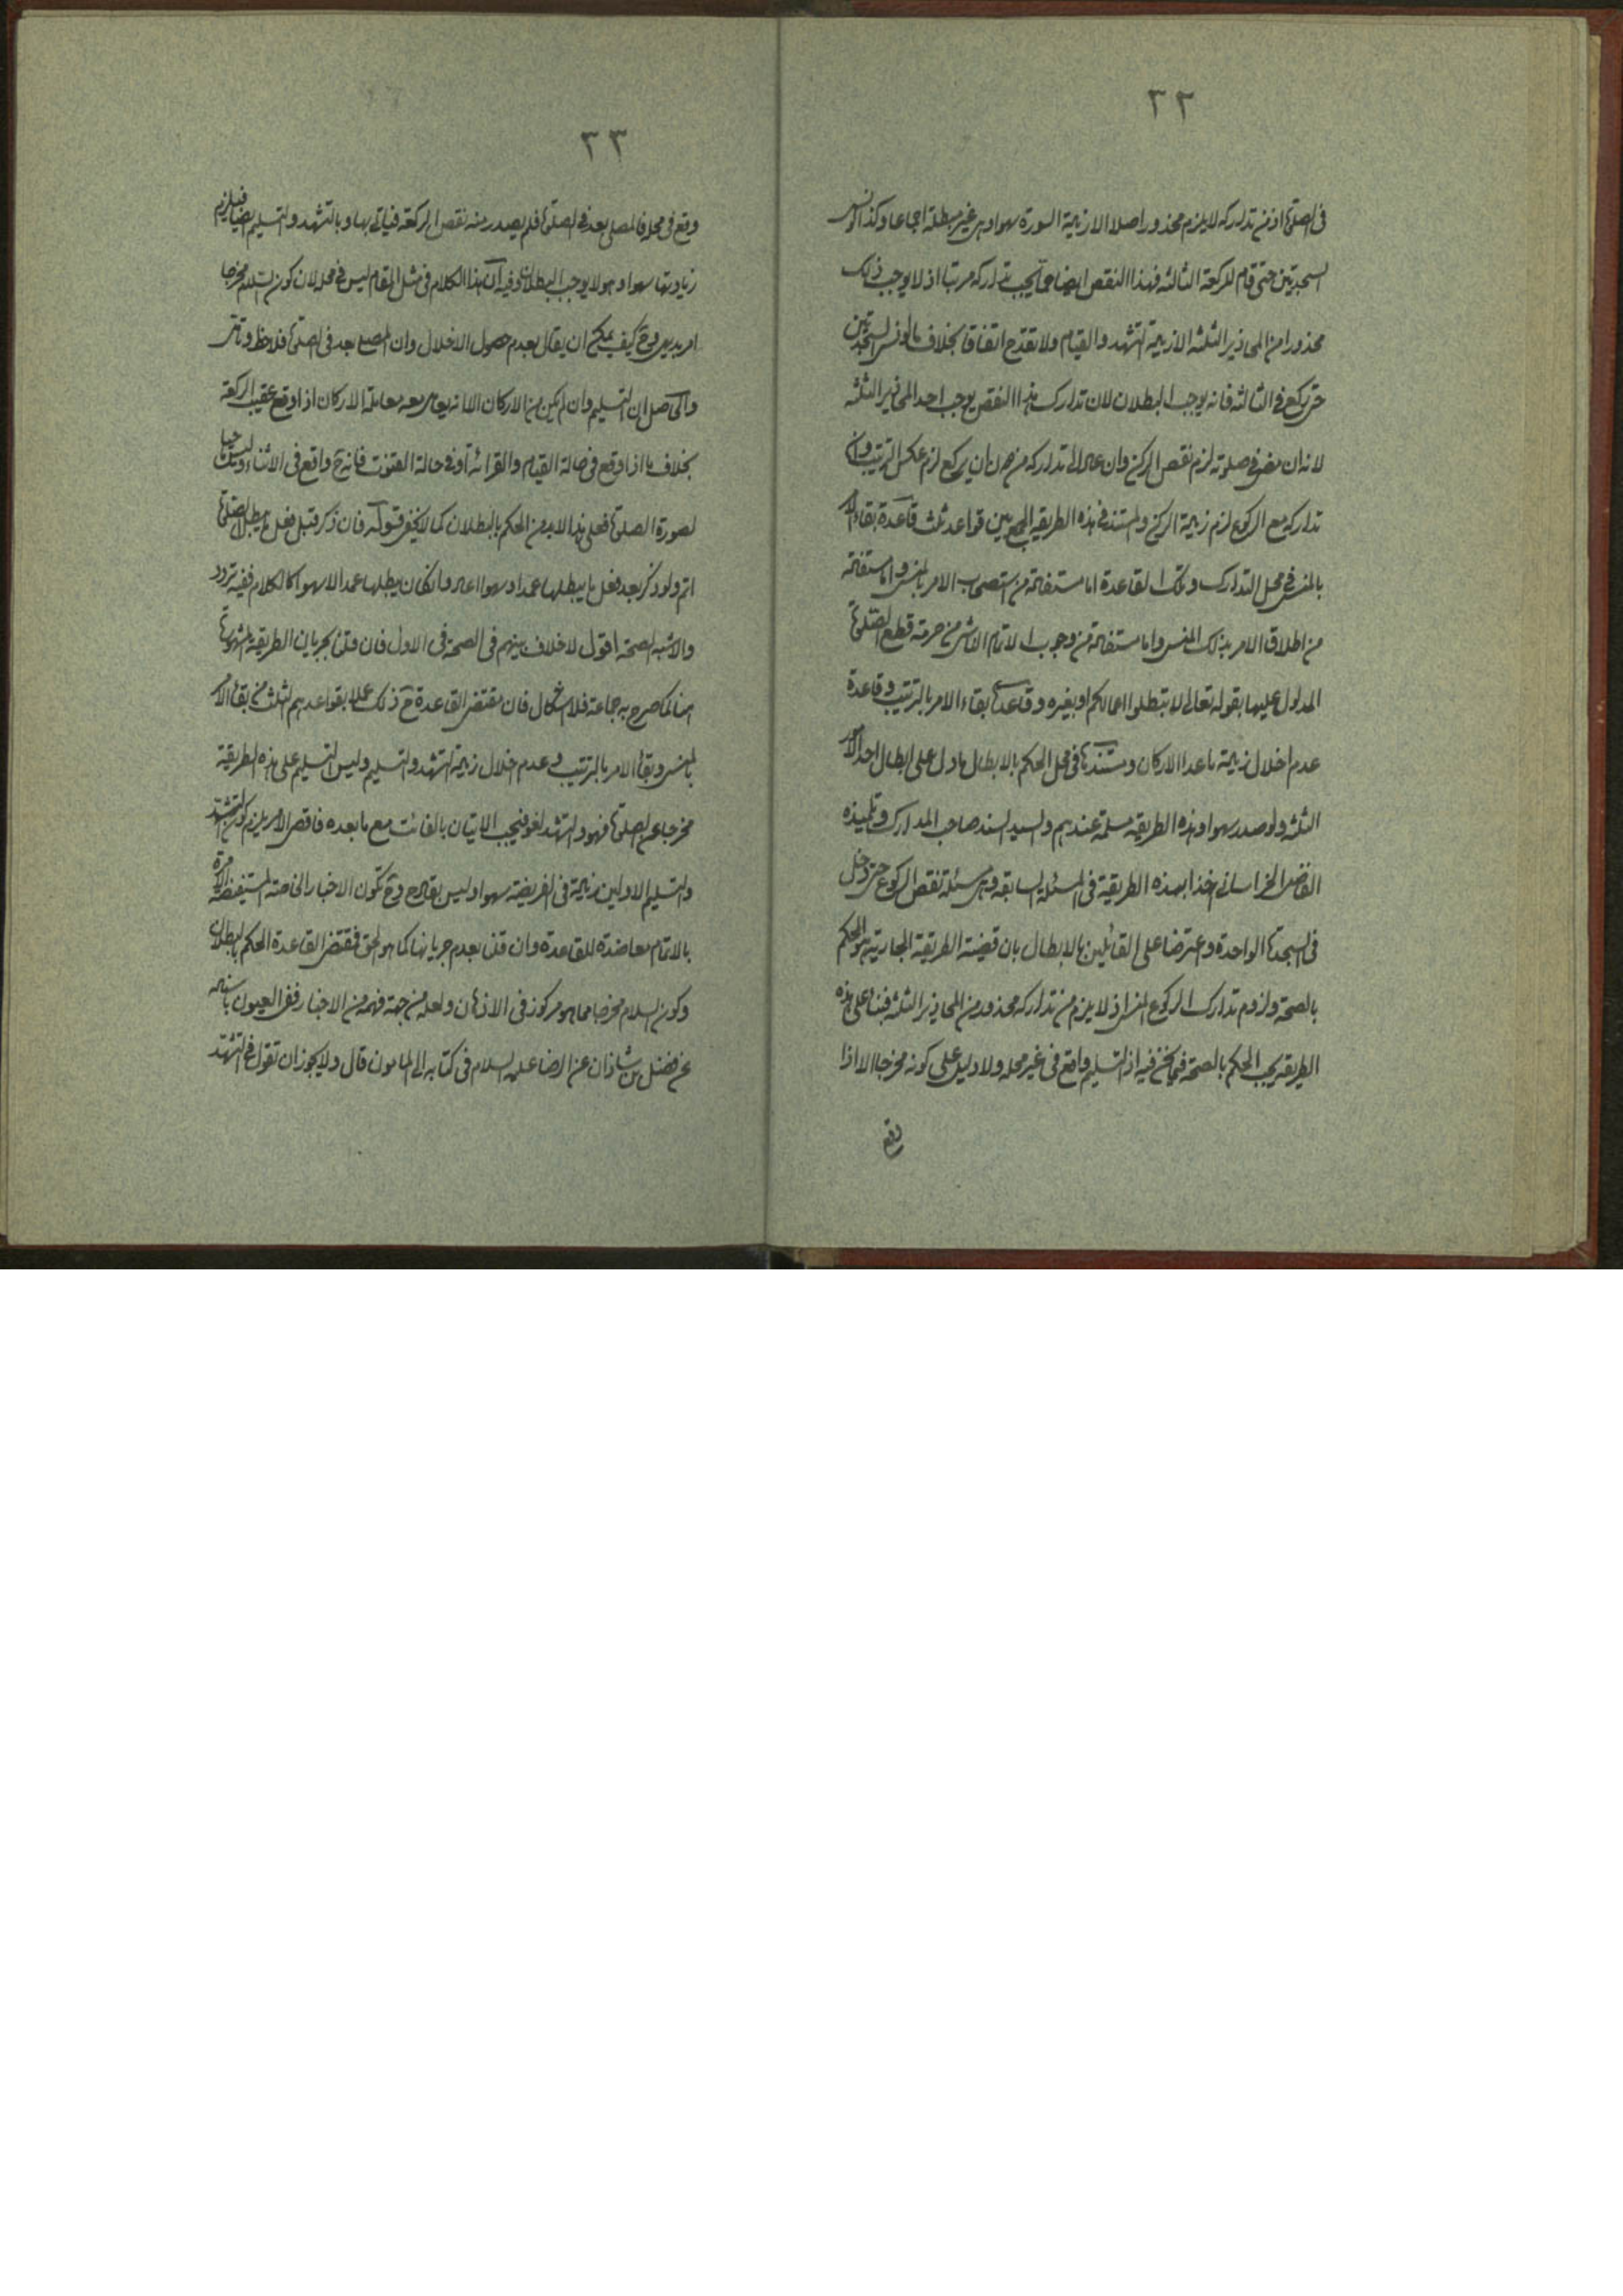 ٣٢
فى الصلوة اذ من تداركه لا يلزم محذور اصلا الا زيادة السورة سهوا وهى غير مبطلة اجماعا وكذا لو نسى
السجدتين حتى قام للركعة الثالثة فهذا النقص ايضا مما يجب تداركه مرتبا اذ لا يوجب ذلك
محذورا من المحاذير الثلثة الا زيادة التشهد والقيام ولا تقدح اتفاقا بخلاف ما لو نسى السجدتين
حتى ركع فى الثالثة فانه يوجب البطلان لان تدارك هذا النقص يوجب احد المحاذير الثلثة
لانه ان مضى فى صلوته لزم نقص الركن وان عاد الى تداركه من دون ان يركع لزم عكس الترتيب وان
تداركه مع الركوع لزم زيادة الركن والمستند فى هذه الطريقة قواعد ثلث قاعدة بقاء الامر
بالمنسى فى محل التدارك وتلك القاعدة اما مستفادة من استصحاب الامر بالمنسى واما مستفادة
من اطلاق الامر بذلك المنسى واما مستفادة من وجوب الاتمام الناشى من حرمة قطع الصلوة
المدلول عليها بقوله تعالى لا تبطلوا اعمالكم او بغيره وقاعدة بقاء الامر بالترتيب وقاعدة
عدم اخلال زيادة ما عدا الاركان ومستندها فى محل الحكم بالابطال ما دل على ابطال احد الامور
الثلثة ولو صدر سهوا وهذه الطريقة مسلمة عندهم والسيد السند صاحب المدارك وتلميذه
الفاضل الخراسانى اخذا بهذه الطريقة فى المسئلة السابقة وهى مسئلة نقص الركوع حتى دخل
فى السجدة الواحدة واعترضا على القائلين بالابطال بان قضية الطريقة الجارية هو الحكم
بالصحة ولزوم تدارك الركوع المنسى اذ لا يلزم من تداركه محذور من المحاذير الثلثة فبناء على هذه
الطريقة يجب الحكم بالصحة فيما نحن فيه اذ التسليم واقع فى غير محله ولا دليل على كونه مخرجا الا اذا
وقع
٣٣
وقع فى محله فالمصلى بعد فى الصلوة فلم يصدر منه نقص الركعة فياتى بها وبالتشهد والتسليم ايضا فيلزم
زيادتها سهوا وهو لا يوجب البطلان وفيه ان هذا الكلام فى مثل المقام ليس فى محله لان كون السلام مخرجا
امر بديهى وح كيف يمكن ان يقال بعدم حصول الاخلال وان المصلى بعد فى الصلوة فلاحظ وتامل
والحاصل ان التسليم وان لم يكن من الاركان الا انه يعامل معه معاملة الاركان اذا وقع عقيب الركعة
بخلاف ما اذا وقع فى حالة القيام والقرائة او فى حالة القنوت فانه ح واقع فى الاثناء وليس ماحيا
لصورة الصلوة فعلى هذا لابد من الحكم بالبطلان كما لا يخفى قوله فان ذكر قبل فعل ما يبطل الصلوة
اتم ولو ذكر بعد فعل ما يبطلها عمدا وسهوا اعاد وان كان يبطلها عمدا لا سهوا كالكلام ففيه تردد
والاشبه الصحة اقول لا خلاف بينهم فى الصحة فى الاول فان قلنا بجريان الطريقة المشهورة
هنا كما صرح به جماعة فلا اشكال فان مقتضى القاعدة ح ذلك عملا بقواعدهم الثلث من بقاء الامر
بالمنسى وبقاء الامر بالترتيب وعدم اخلال زيادة التشهد والتسليم وليس التسليم على هذه الطريقة
مخرجا عن الصلوة فهو والتشهد لغو فيجب الاتيان بالفائت مع ما بعده فاقصى الامر يلزم كون التشهد
والتسليم الاولين زيادة فى الفريضة سهوا وليس بقادح وح تكون الاخبار الخاصة المستفيضة الامرة
بالاتمام معاضدة للقاعدة وان قلنا بعدم جريانها كما هو الحق فمقتضى القاعدة الحكم بالبطلان
وكون السلام مخرجا مما هو مركوز فى الاذهان ولعله من جهة فهمه من الاخبار ففى العيون باسناده
عن فضل بن شاذان عن الرضا عليه السلام فى كتابه الى المامون قال ولا يجوز ان تقول فى التشهد